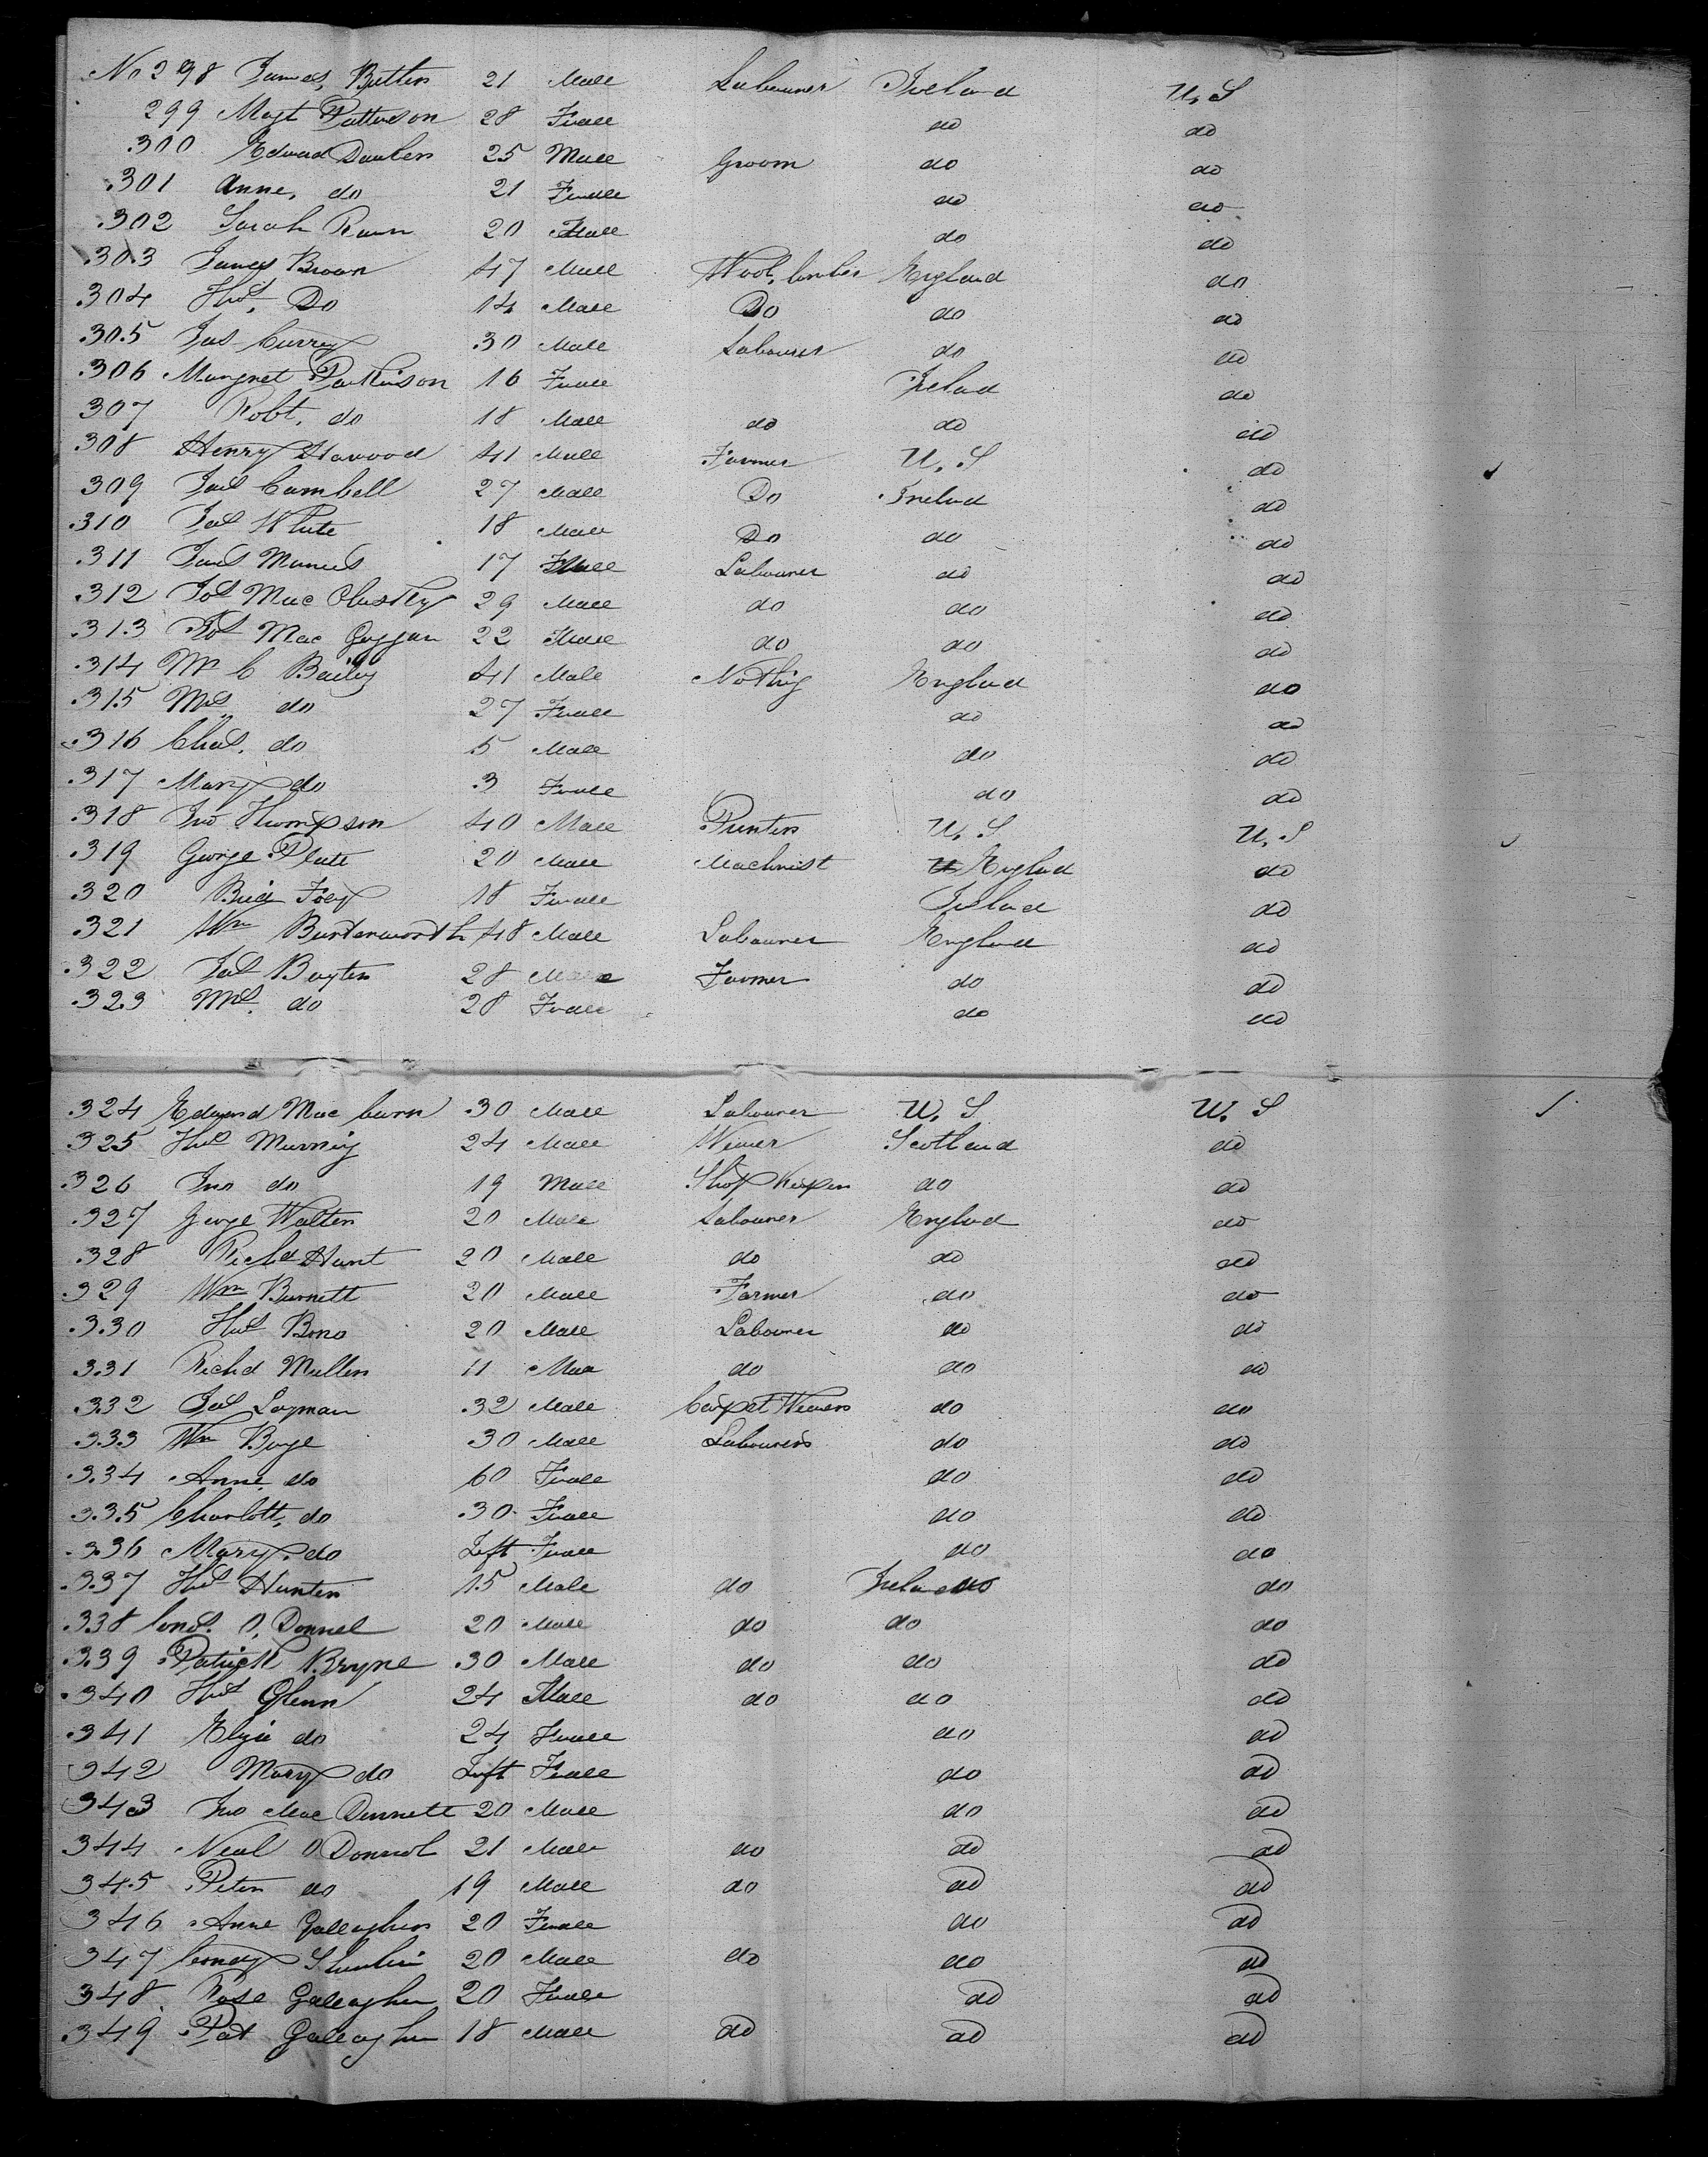 No 298 James Butler 21 Male Labourer Ireland U. S
299 Magt Patterson 28 Fmale do do
300 Edward 25 Male Groom do do
301 Anne, do 21 Fmale do do
302 Sarah 20 do do
303 James Brown 47 Male England do
304 Thos, Do 14 Male Do do do
305 Jas Currey 30 Male Labourer do do
306 Margret Parkinson 16 Fmale Irelad do
307 Robt. do 18 Male do do do
308 Henry Harwood 41 Male Farmer U. S do
309 Jas Cambell 27 Male Do Irelad do
310 Jas White 18 Male Do do do
311 Jas 17 Male Labourer do do
312 Jos Mac 29 Male do do do
313 Mac 22 Male do do do
314 Mr C Baily 41 Male Nothig Englad do
315 Mrs do 27 Fmale do do
316 Chas. do 5 Male do do
317 Mary do 3 Fmale do do
318 Jno Thompson 40 Male Printer U. S U. S
319 George Plate 20 Male Machinist Englad do
320 Foley 18 Fmale Irelad do
321 Wm Burterworth 48 Male Labourer Englad do
322 Jas 28 Male Farmer do do
323 Mrs. do 28 Fmale do do
324 Edward Mac 30 Male Labourer U. S U. S
325 Thos 24 Male Wever Scotland do
326 Jno do 19 Male Shop Keeper do do
327 George Walter 20 Male Labourer Englad do
328 Richd Hunt 20 Male do do do
329 Wm Burnett 20 Male Farmer do do
330 Thos 20 Male Labourer do do
331 Richd Muller 11 Male do do do
332 Jas Layman 32 Male Carpet Wever do do
333 Wm Boye 30 Male Labourer do do
334 Anne, do 60 Fmale do do
335 Charlott, do 30 Fmale do do
336 Mary, do Fmale do do
337 Thos Hunter 15 Male do Ireland do
338 Cons. O, Donnel 20 Male do do do
339 Patrick Bryne 30 Male do do do
340 Thos Glenn 24 Male do do do
341 Eliza do 24 Fmale do do
342 Mary do Fmale do do
343 Jno Mac 20 Male do do
344 Neal O Donnol 21 Male do do do
345 Peter do 19 Male do do do
346 Anne Gallagher 20 Fmale do do
347 20 Male do do do
348 Rose Gallagher 20 Fmale do do
349 Pat Gallagher 18 Male do do do